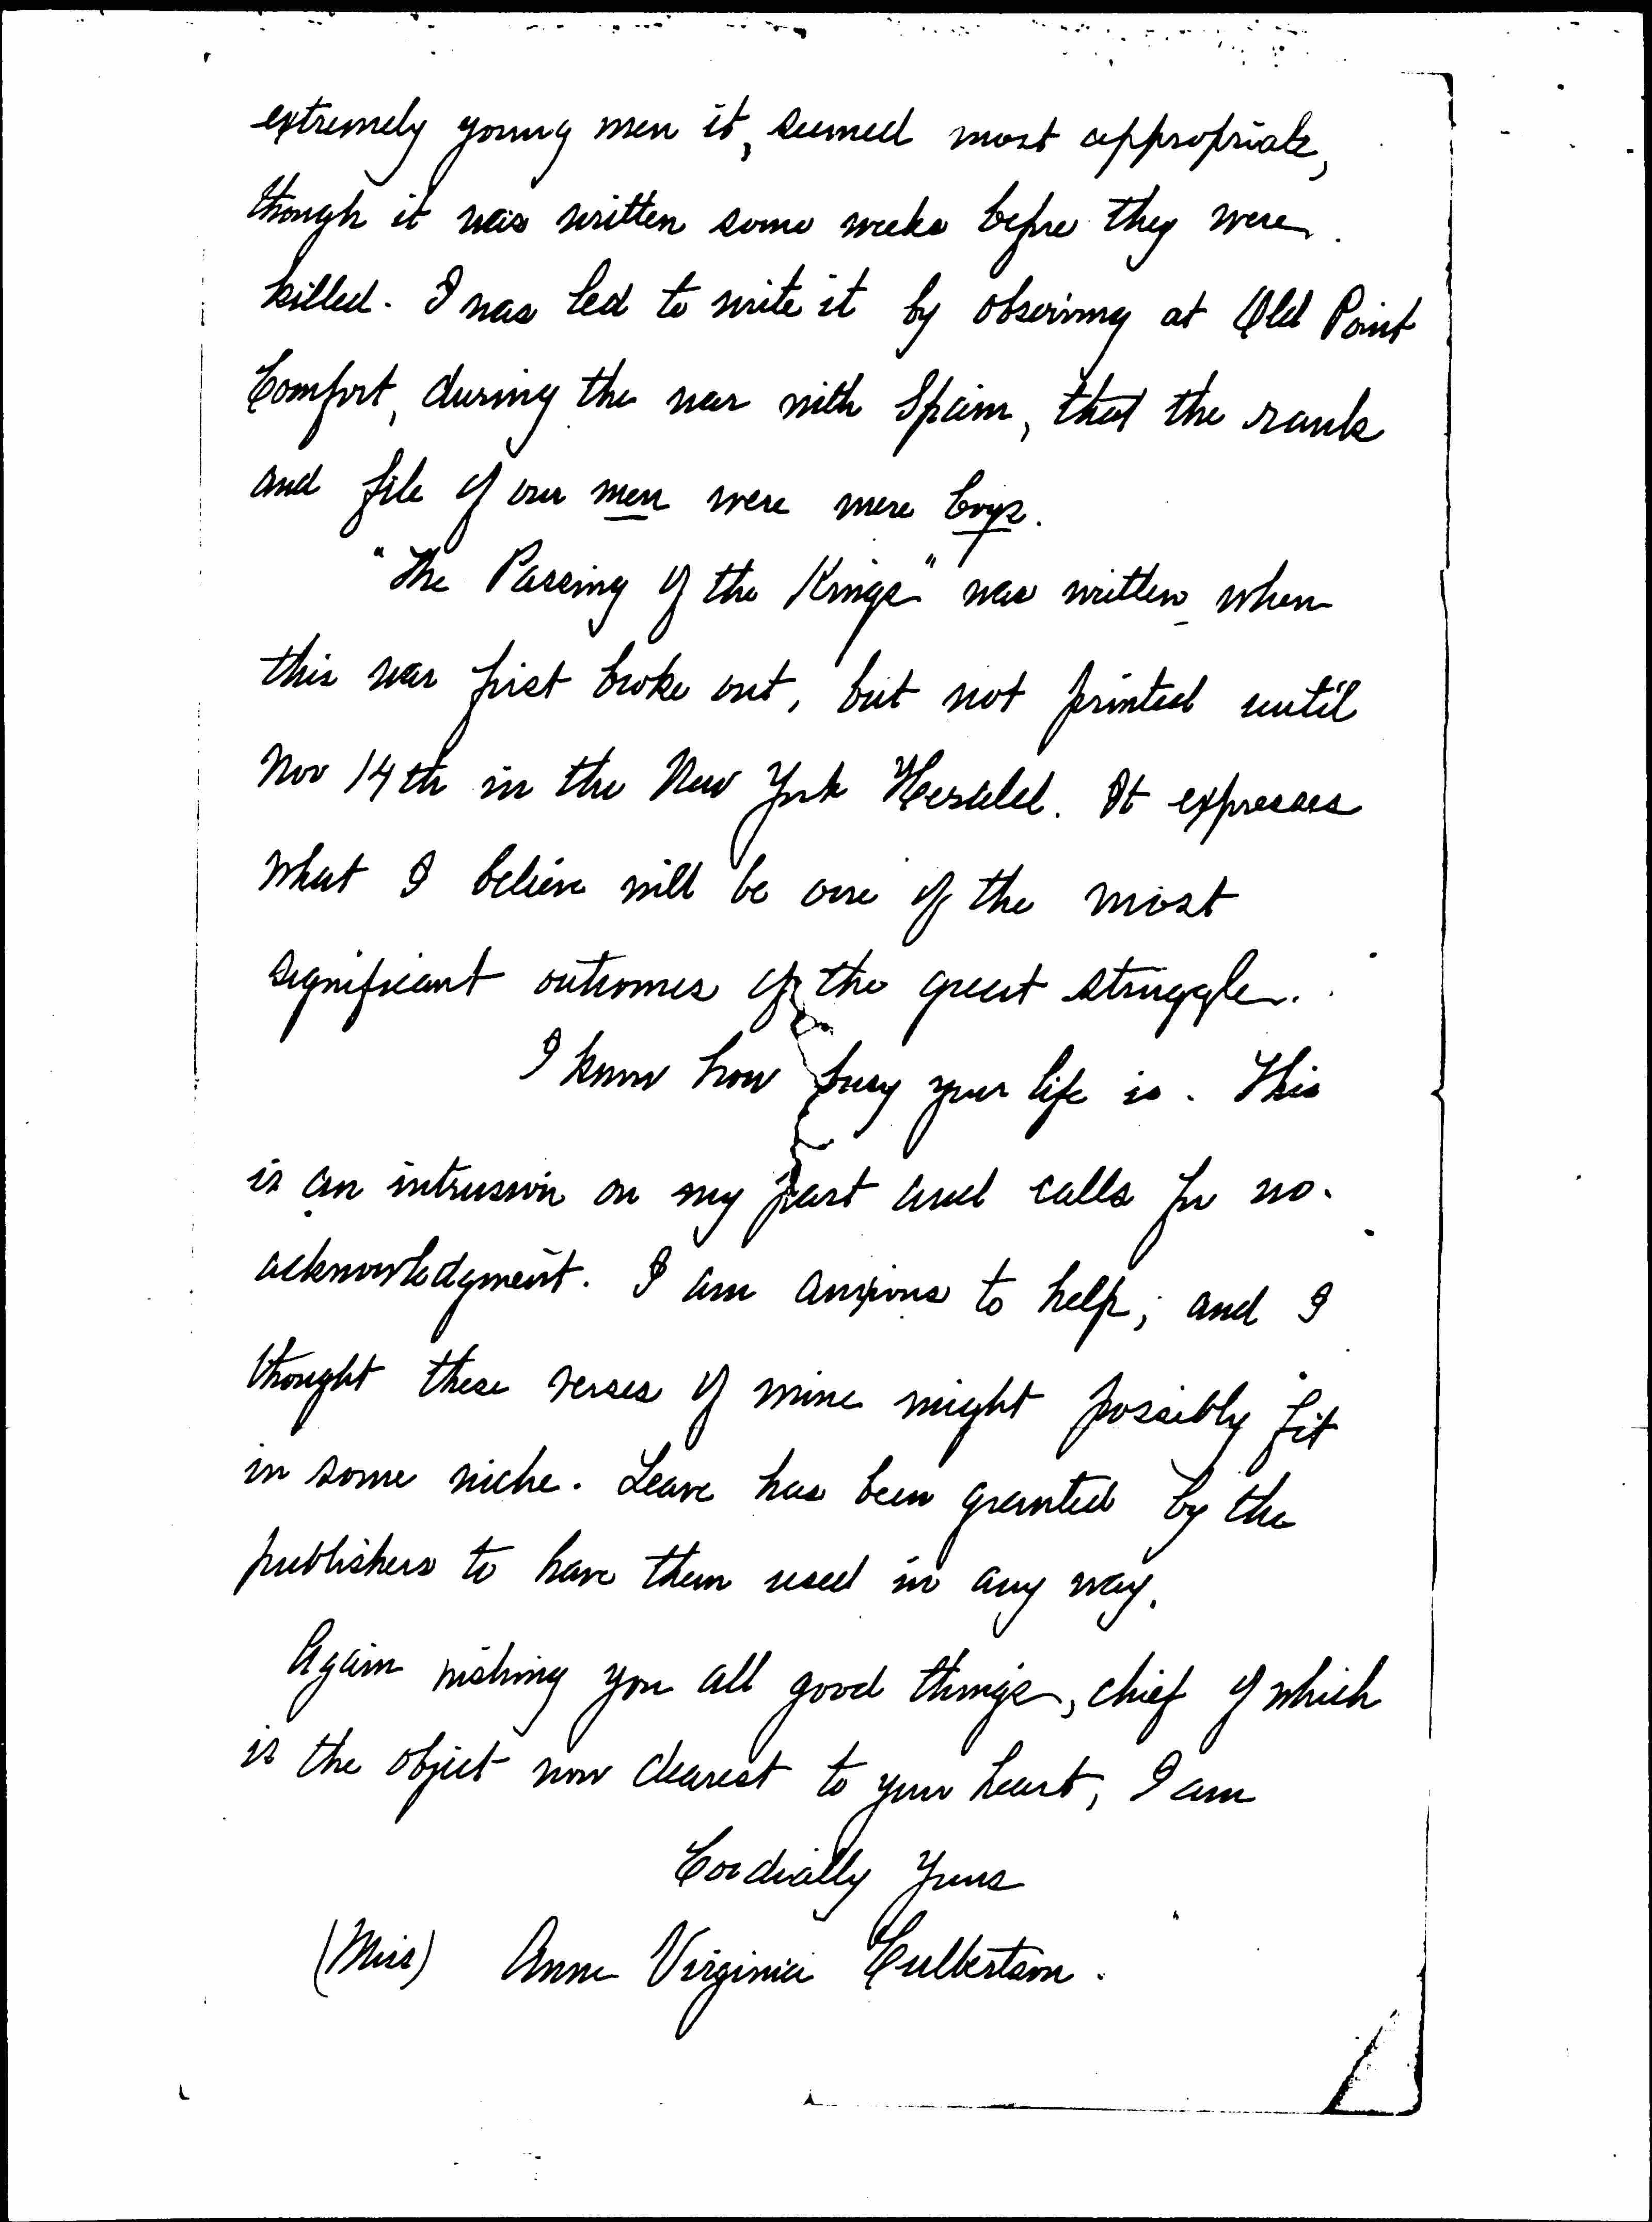 extremely young men it, seemed most appropriate,
though it was written some weeks before they were
killed. I was led to write it by observing at Old Point
Comfort, during the war with Spain, that the rank
and file of our men were mere boys.
"The Passing of the Kings" was written when
this war first broke out, but not printed until
Nov 14th in the New York Herald. It expresses
what I believe will be one of the most
significant outcomes of the great struggle.
I know how busy your life is. This
is an intrusion on my part and calls for no
acknowledgment. I am anxious to help; and I
thought these verses of mine might possibly fit
in some niche. Leave has been granted by the
publishers to have them used in any way.
Again wishing you all good things, chief of which
is the object now dearest to your heart, I am
Cordially Yours
(Miss) Anne Virginia Culbertson.